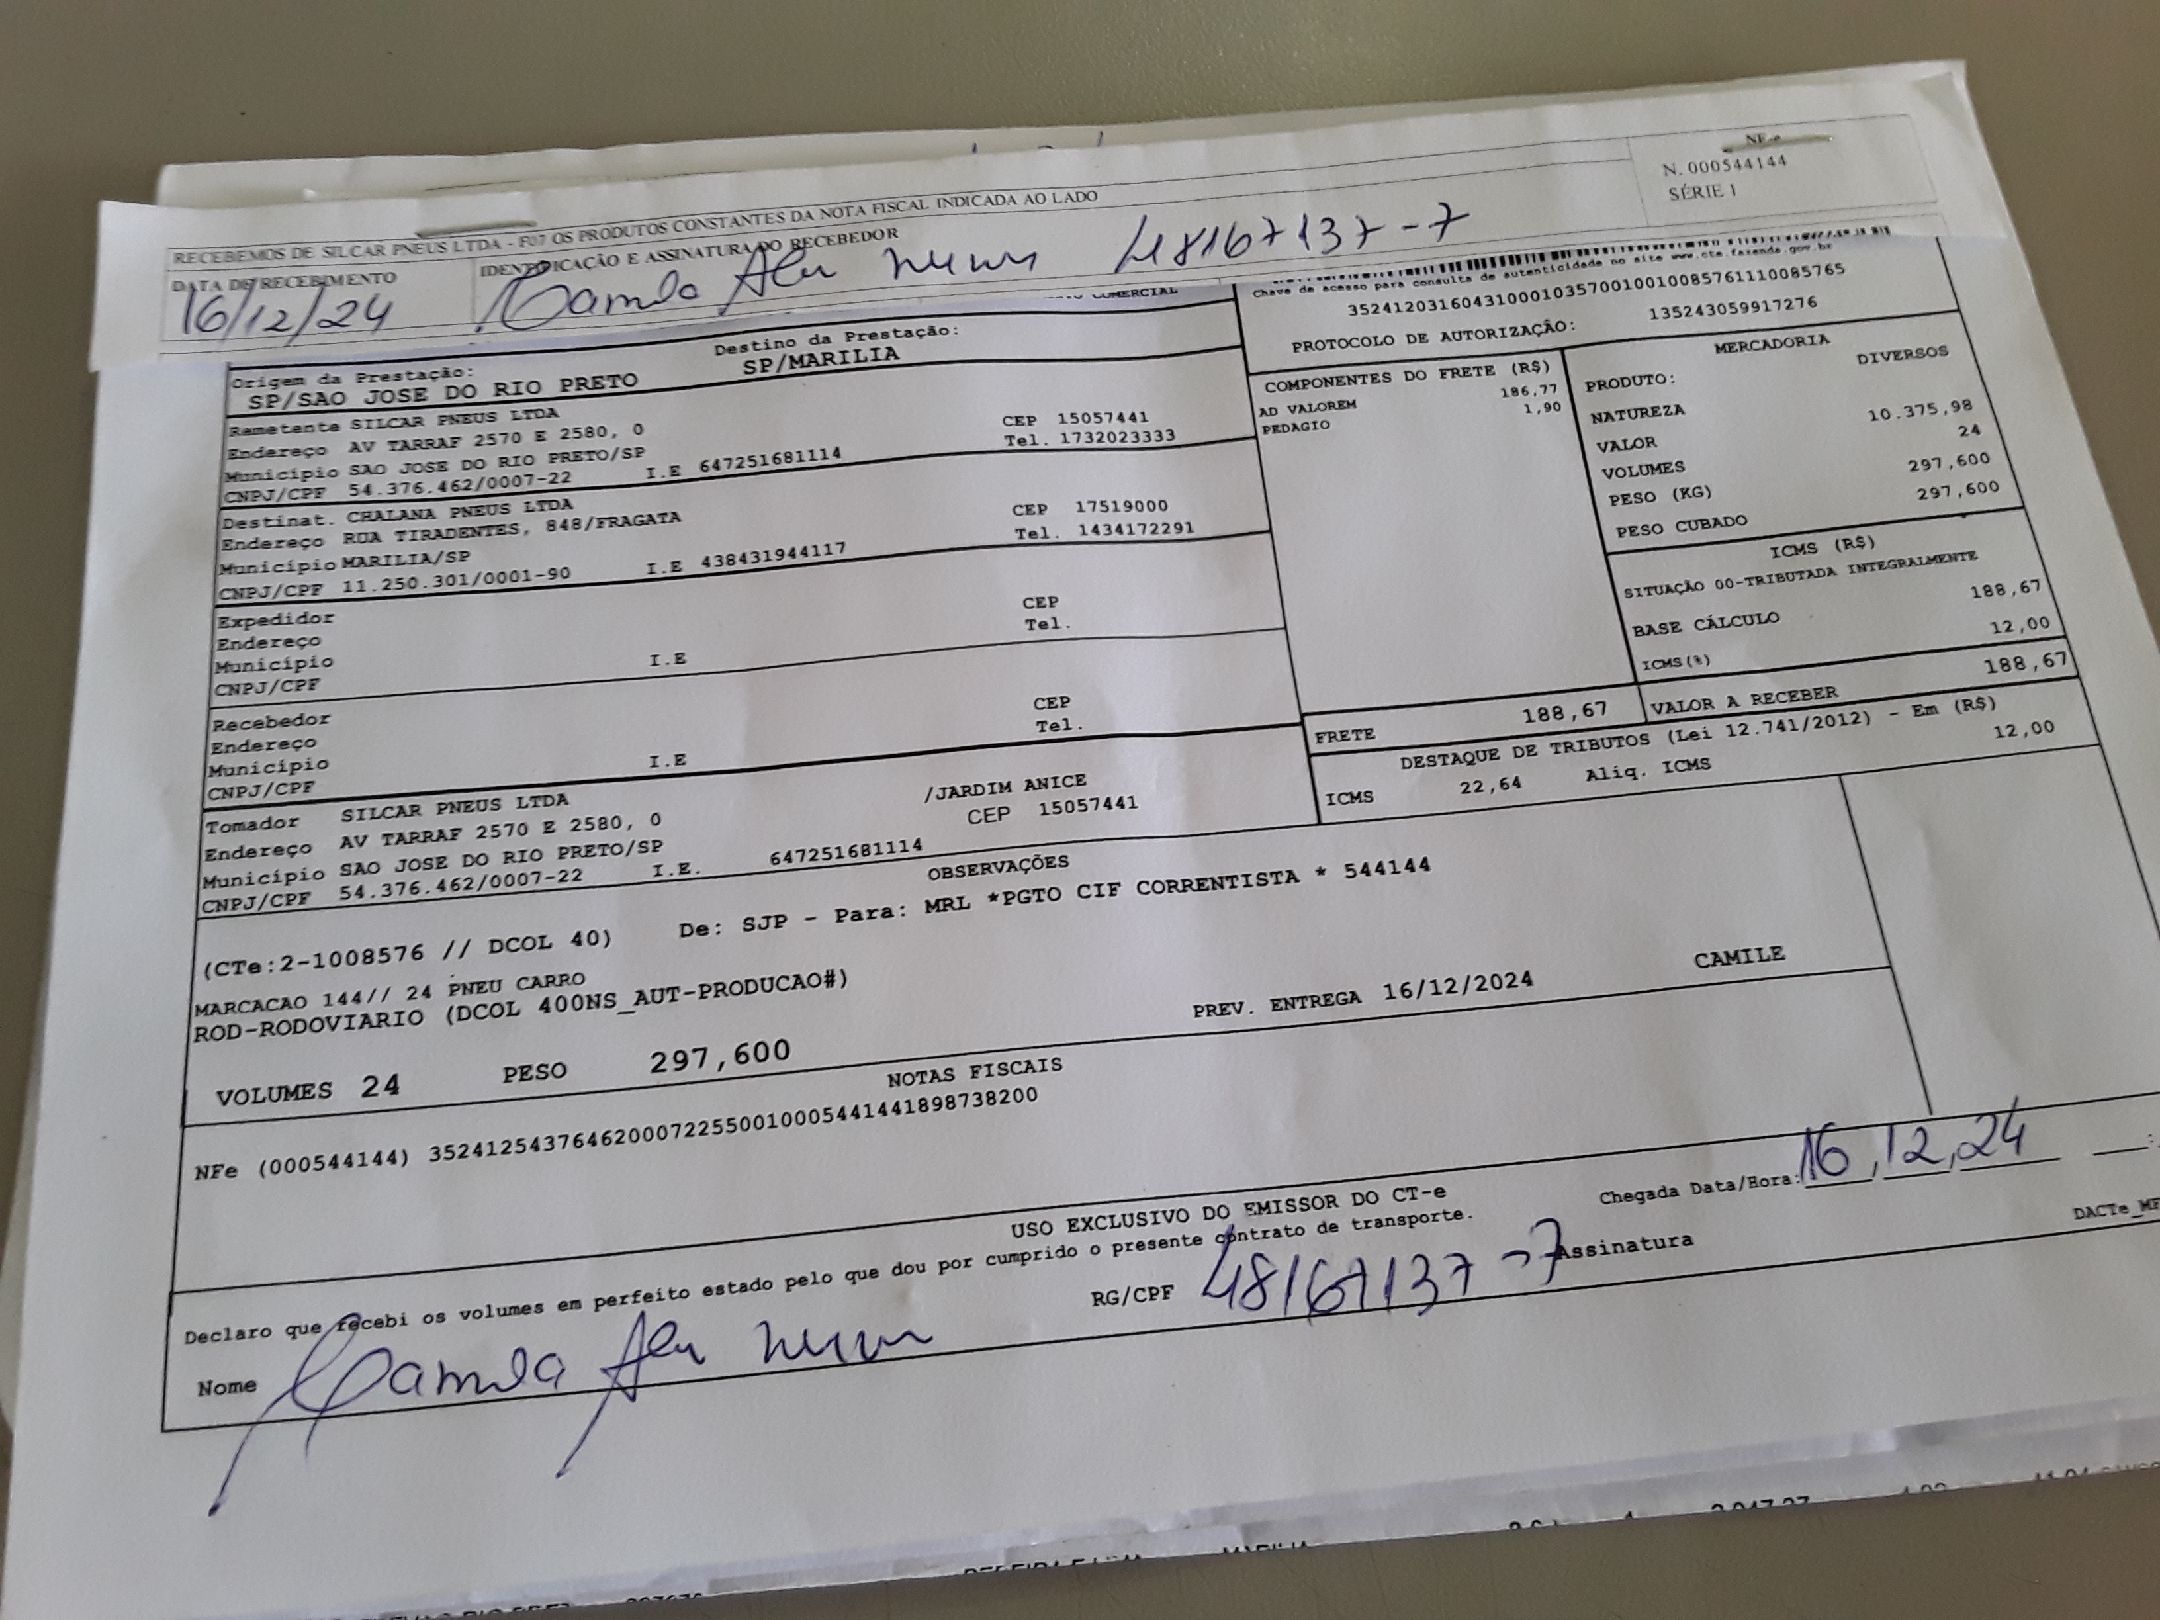 NF-e
N. 000544144
SÉRIE 1
RECEBEMOS DE SILCAR PNEUS LTDA - F07 OS PRODUTOS CONSTANTES DA NOTA FISCAL INDICADA AO LADO
DATA DE RECEBIMENTO
IDENTIFICAÇÃO E ASSINATURA DO RECEBEDOR
16/12/24
Camila 48167137-7
COMERCIAL
Chave de acesso para consulta de autenticidade no site www.cte.fazenda.gov.br
35241203160431000103570010010085761110085765
PROTOCOLO DE AUTORIZAÇÃO: 135243059917276
Origem da Prestação: Destino da Prestação:
SP/SAO JOSE DO RIO PRETO SP/MARILIA
Remetente SILCAR PNEUS LTDA
Endereço AV TARRAF 2570 E 2580, 0 CEP 15057441
Município SAO JOSE DO RIO PRETO/SP Tel. 1732023333
CNPJ/CPF 54.376.462/0007-22 I.E 647251681114
Destinat. CHALANA PNEUS LTDA
Endereço RUA TIRADENTES, 848/FRAGATA CEP 17519000
Município MARILIA/SP Tel. 1434172291
CNPJ/CPF 11.250.301/0001-90 I.E 438431944117
Expedidor
Endereço CEP
Município Tel.
CNPJ/CPF I.E
Recebedor
Endereço CEP
Município Tel.
CNPJ/CPF I.E
Tomador SILCAR PNEUS LTDA
Endereço AV TARRAF 2570 E 2580, 0 /JARDIM ANICE
Município SAO JOSE DO RIO PRETO/SP CEP 15057441
CNPJ/CPF 54.376.462/0007-22 I.E. 647251681114
COMPONENTES DO FRETE (R$)
AD VALOREM 186,77
PEDAGIO 1,90
MERCADORIA
PRODUTO: DIVERSOS
NATUREZA
VALOR 10.375,98
VOLUMES 24
PESO (KG) 297,600
PESO CUBADO 297,600
ICMS (R$)
SITUAÇÃO 00-TRIBUTADA INTEGRALMENTE
BASE CÁLCULO 188,67
ICMS(%) 12,00
FRETE 188,67
VALOR A RECEBER 188,67
DESTAQUE DE TRIBUTOS (Lei 12.741/2012) - Em (R$)
ICMS 22,64 Aliq. ICMS 12,00
OBSERVAÇÕES
(CTe:2-1008576 // DCOL 40) De: SJP - Para: MRL *PGTO CIF CORRENTISTA * 544144
MARCACAO 144// 24 PNEU CARRO
ROD-RODOVIARIO (DCOL 400NS_AUT-PRODUCAO#)
PREV. ENTREGA 16/12/2024 CAMILE
VOLUMES 24 PESO 297,600
NOTAS FISCAIS
NFe (000544144) 35241254376462000722550010005441441898738200
USO EXCLUSIVO DO EMISSOR DO CT-e
Chegada Data/Hora: 16,12,24
Declaro que recebi os volumes em perfeito estado pelo que dou por cumprido o presente contrato de transporte.
DACTe_
Nome Camila RG/CPF 48167137-7 Assinatura